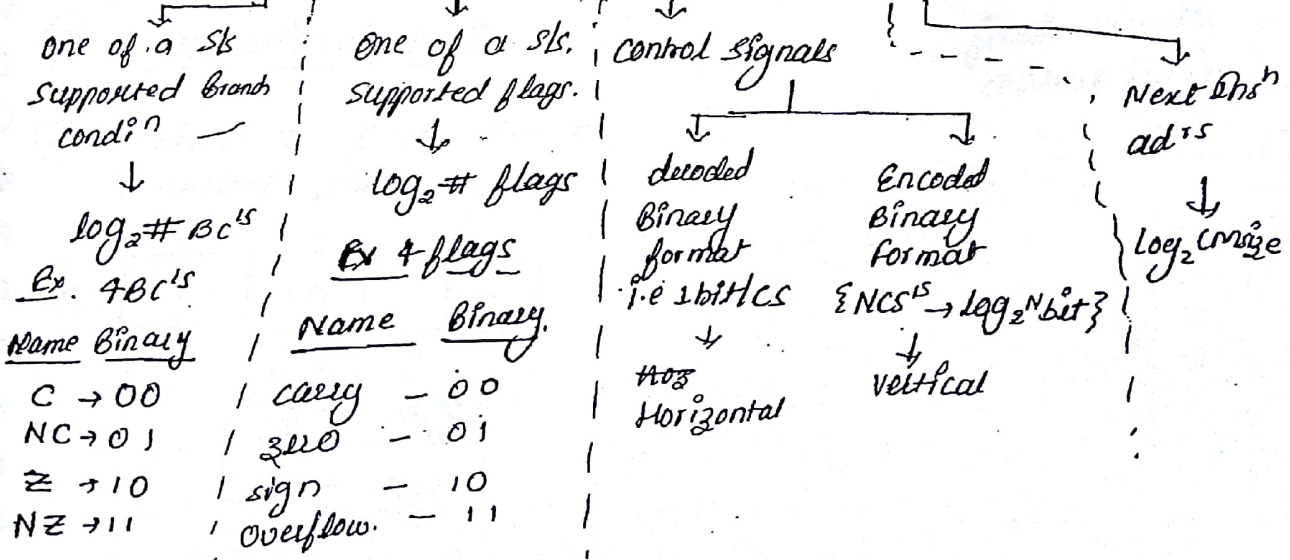 one of a S/s
supported Branch
condiⁿ
↓
log₂# BC's
Ex. 4BC's
Name Binary
C → 00
NC → 01
Z → 10
NZ → 11
One of a S/s.
supported flags.
↓
log₂# flags
Ex 4 flags
Name Binary.
carry - 00
zero - 01
sign - 10
overflow. - 11
Control Signals
decoded
Binary
format
i.e 1bit/CS
↓
Horizontal
Encoded
Binary
Format
{NCS's → log₂N bit}
↓
Vertical
Next Insⁿ
adrs
↓
Log₂ CMsize